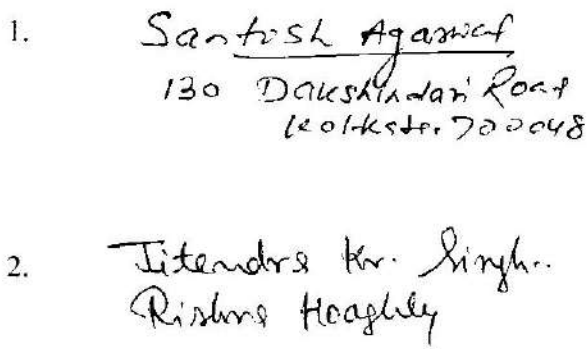 1. Santosh Agarwal
130 Dakshindari Road
Kolkata. 700048
2. Jitendra Kr. Singh.
Rishra Hooghly